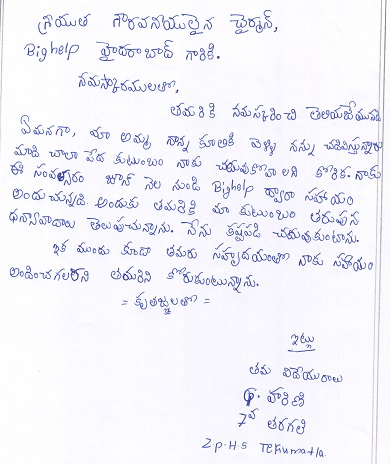 శ్రీయుత గౌరవనీయులైన ఛైర్మన్,
Bighelp హైదరాబాద్ గారికి.
నమస్కారములతో,
తమరికి నమస్కరించి తెలియజేయునది
ఏమనగా, మా అమ్మ నాన్న కూలికి వెళ్ళి నన్ను చదివిస్తున్నారు
మాది చాలా పేద కుటుంబం నాకు చదువుకోవాలని కోరిక. నాకు
ఈ సంవత్సరం జూన్ నెల నుండి Bighelp ద్వారా సహాయం
అందుచున్నది. అందుకు తమరికి మా కుటుంబం తరుపున
ధన్యావాదాలు తెలుపుచున్నాను. నేను కష్టపడి చదువుకుంటాను.
ఇక ముందు కూడా తమరు సహృదయంతో నాకు సహాయం
అందించగలరని తమరిని కోరుకుంటున్నాను.
= కృతజ్ఞలతో =
ఇట్లు
తమ విదేయురాలు
హారిణి
7వ తరగతి
Z.p.H.S Tekumatla.